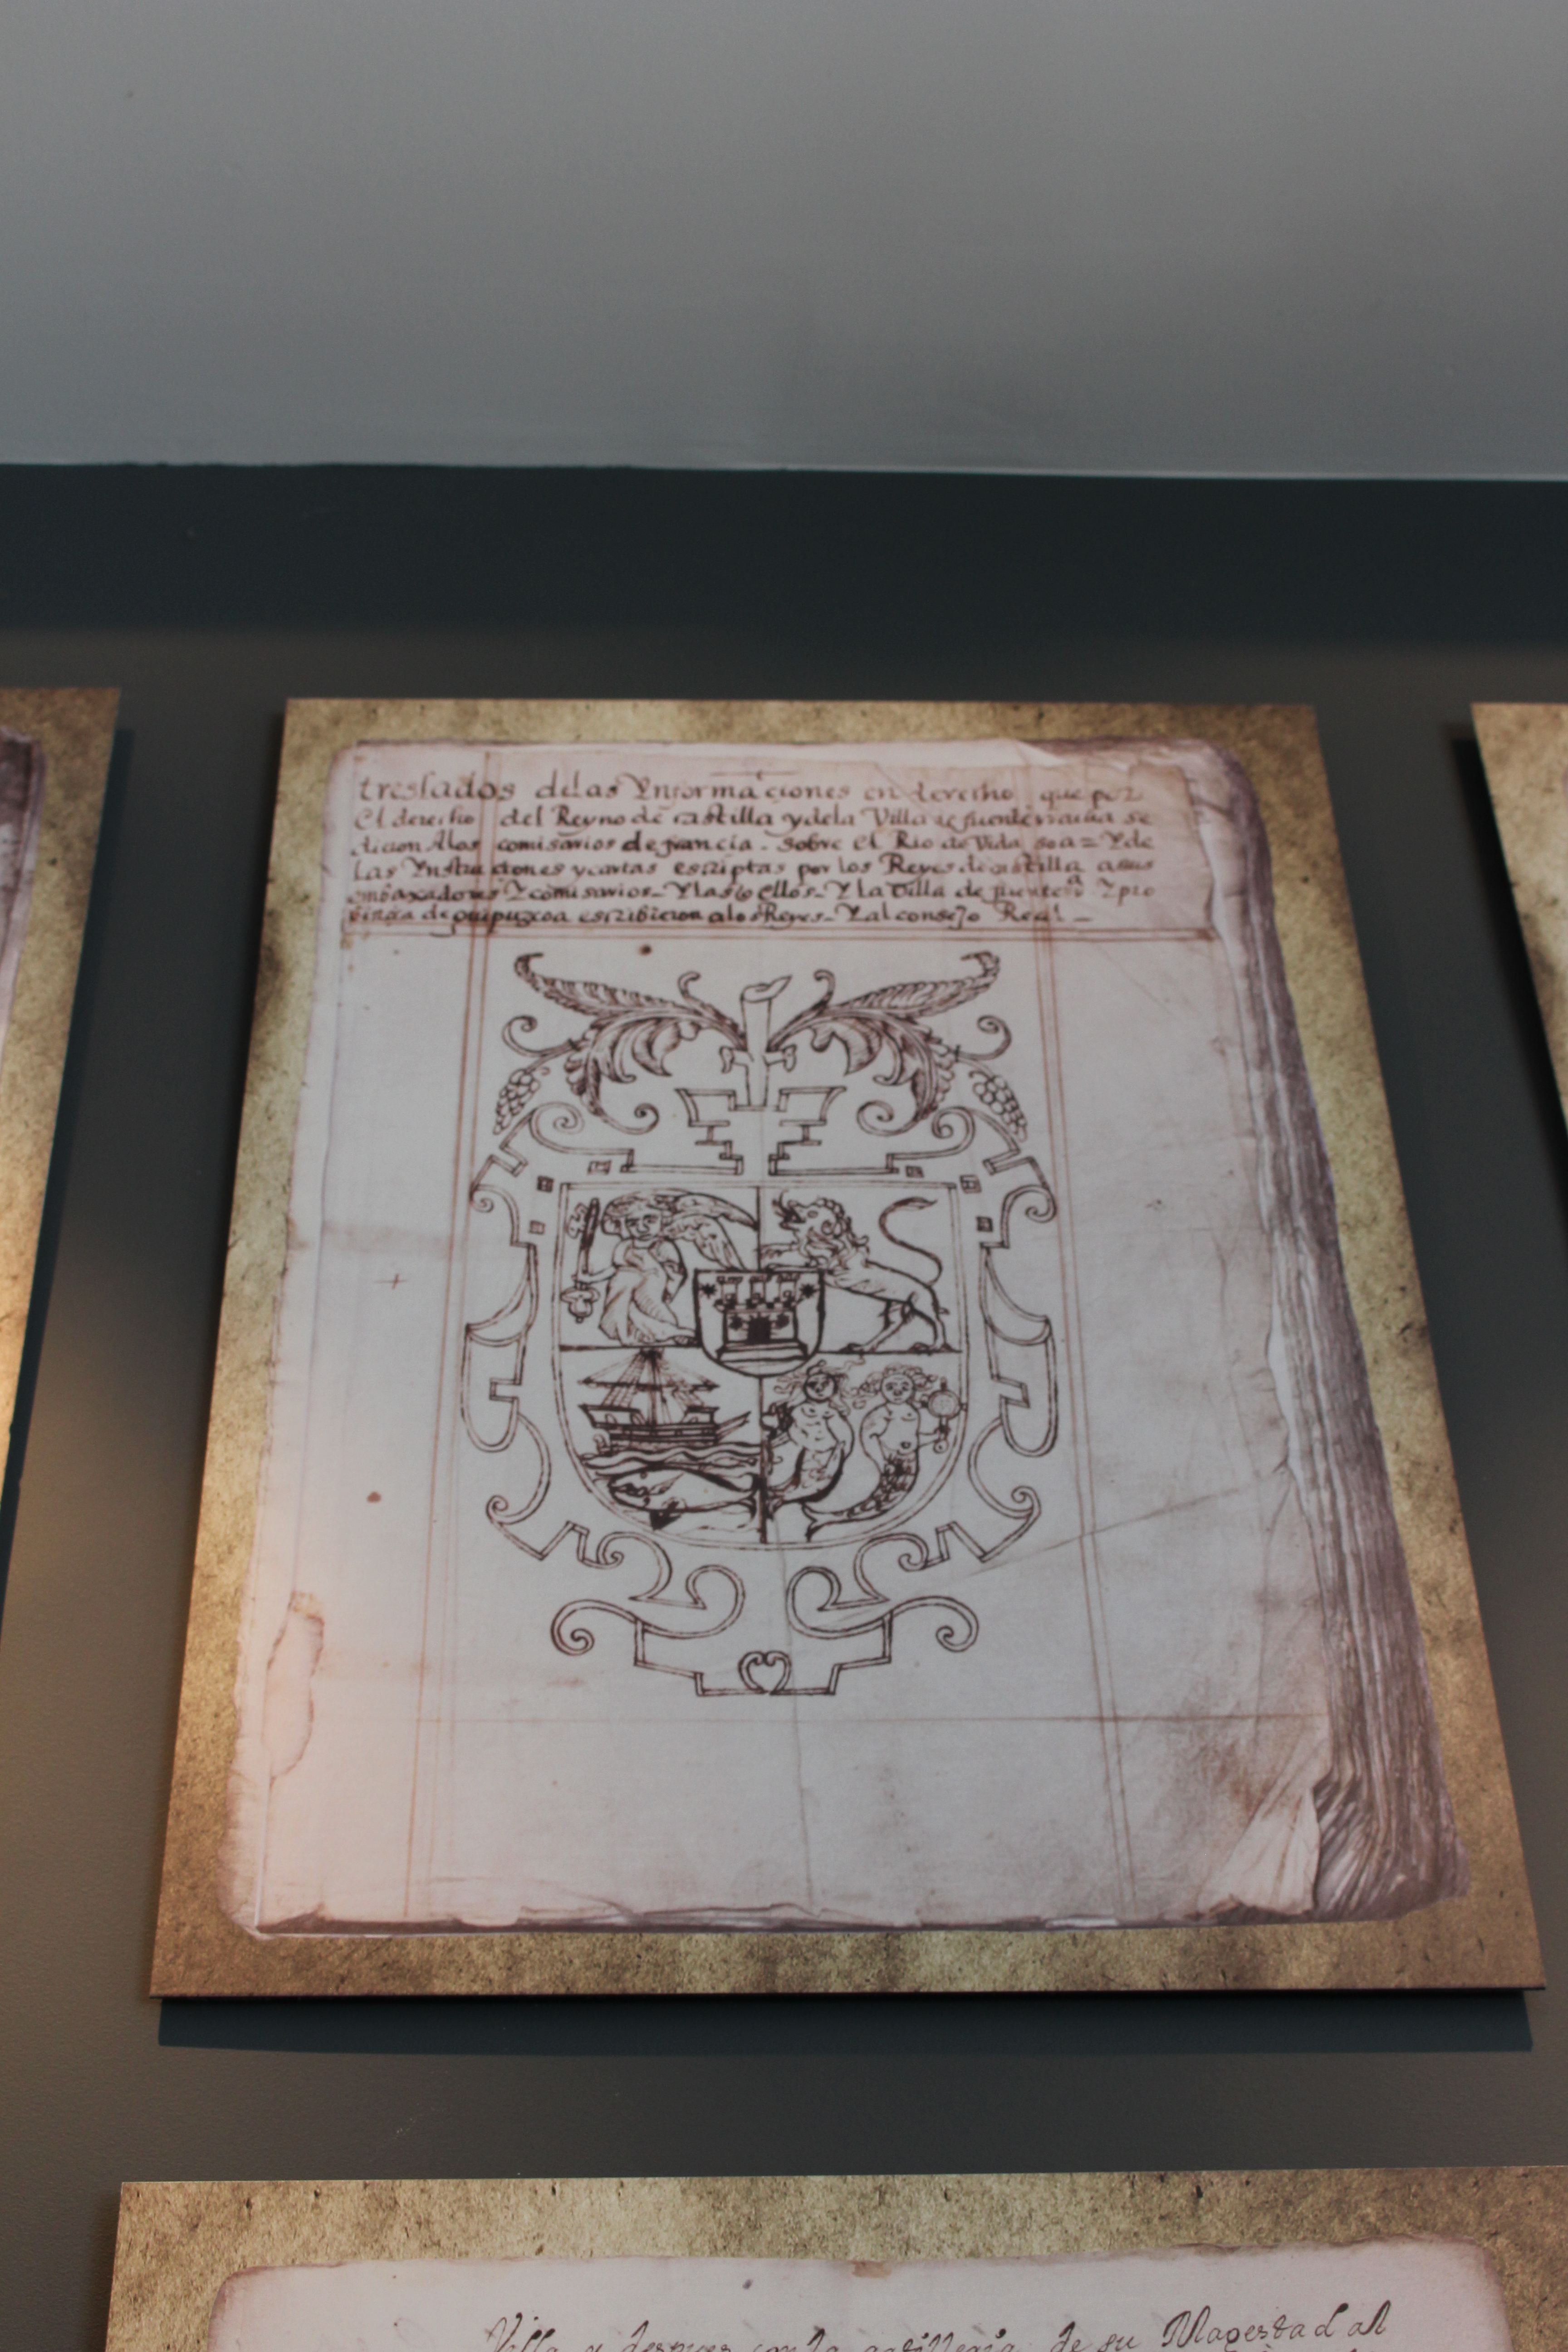 treslados delas Ynformaciones en derecho que por
El derecho del Reyno de castilla y dela Villa de fuenterrauia se
dieron Alos comisarios de francia. sobre El Rio de Vida soa = Y de
Las Ynstruciones y cartas escriptas por los Reyes de castilla a sus
embaxadores Y comisarios - Y las q̃ ellos - Y la Villa de fuenterª Y pro
binçia de guipuzcoa escribieron alos Reyes - Y al consejo Real -
Villa y despues con la artilleria de su Magestad al